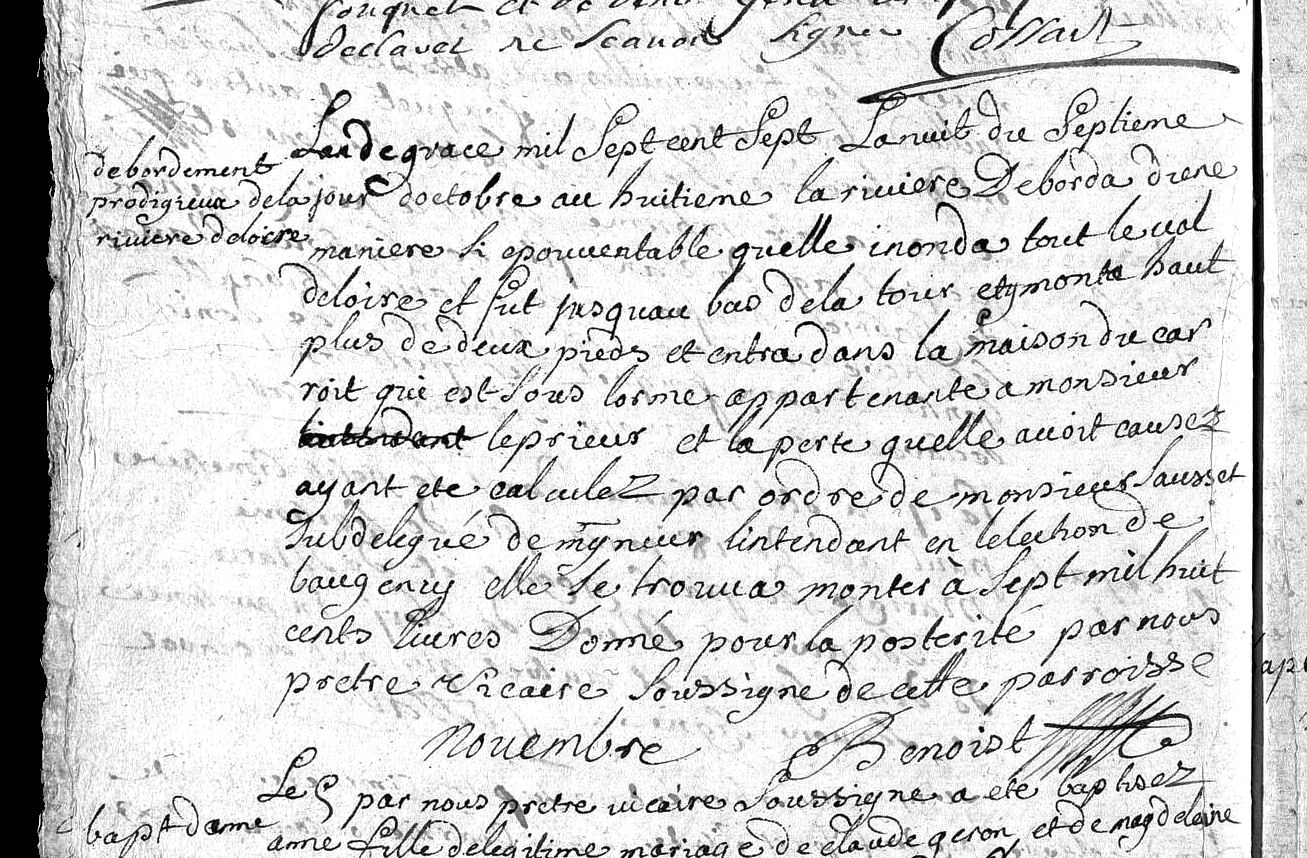 fouquet et de
declarez ne scavoir signer Cossart
debordement
prodigieux dela
riviere deloire
Lan de grace mil Sept cent Sept La nuit du Septieme
jour doctobre au huitieme la riviere Deborda dune
maniere si epouventable quelle inonda tout le val
deloire et fut jusquau bas dela tour et y monta haut
plus de deux pieds et entra dans la maison du car
roit qui est sous lorme appartenante a monsieur
leprieur et la perte quelle avoit causez
ayant ete calculez par ordre de monsieur Sausset
Subdelegué de mgneur lintendant en lelection de
baugency elle se trouva monter à Sept mil huit
cents livres Donné pour la posterité par nous
pretre vicaire soussigne de cette parroisse
Novembre Benoist
bapt danne
Le 5 par nous pretre vicaire soussigne a ete baptisez
anne fille de legitime mariage de claude geron et de magdeleine